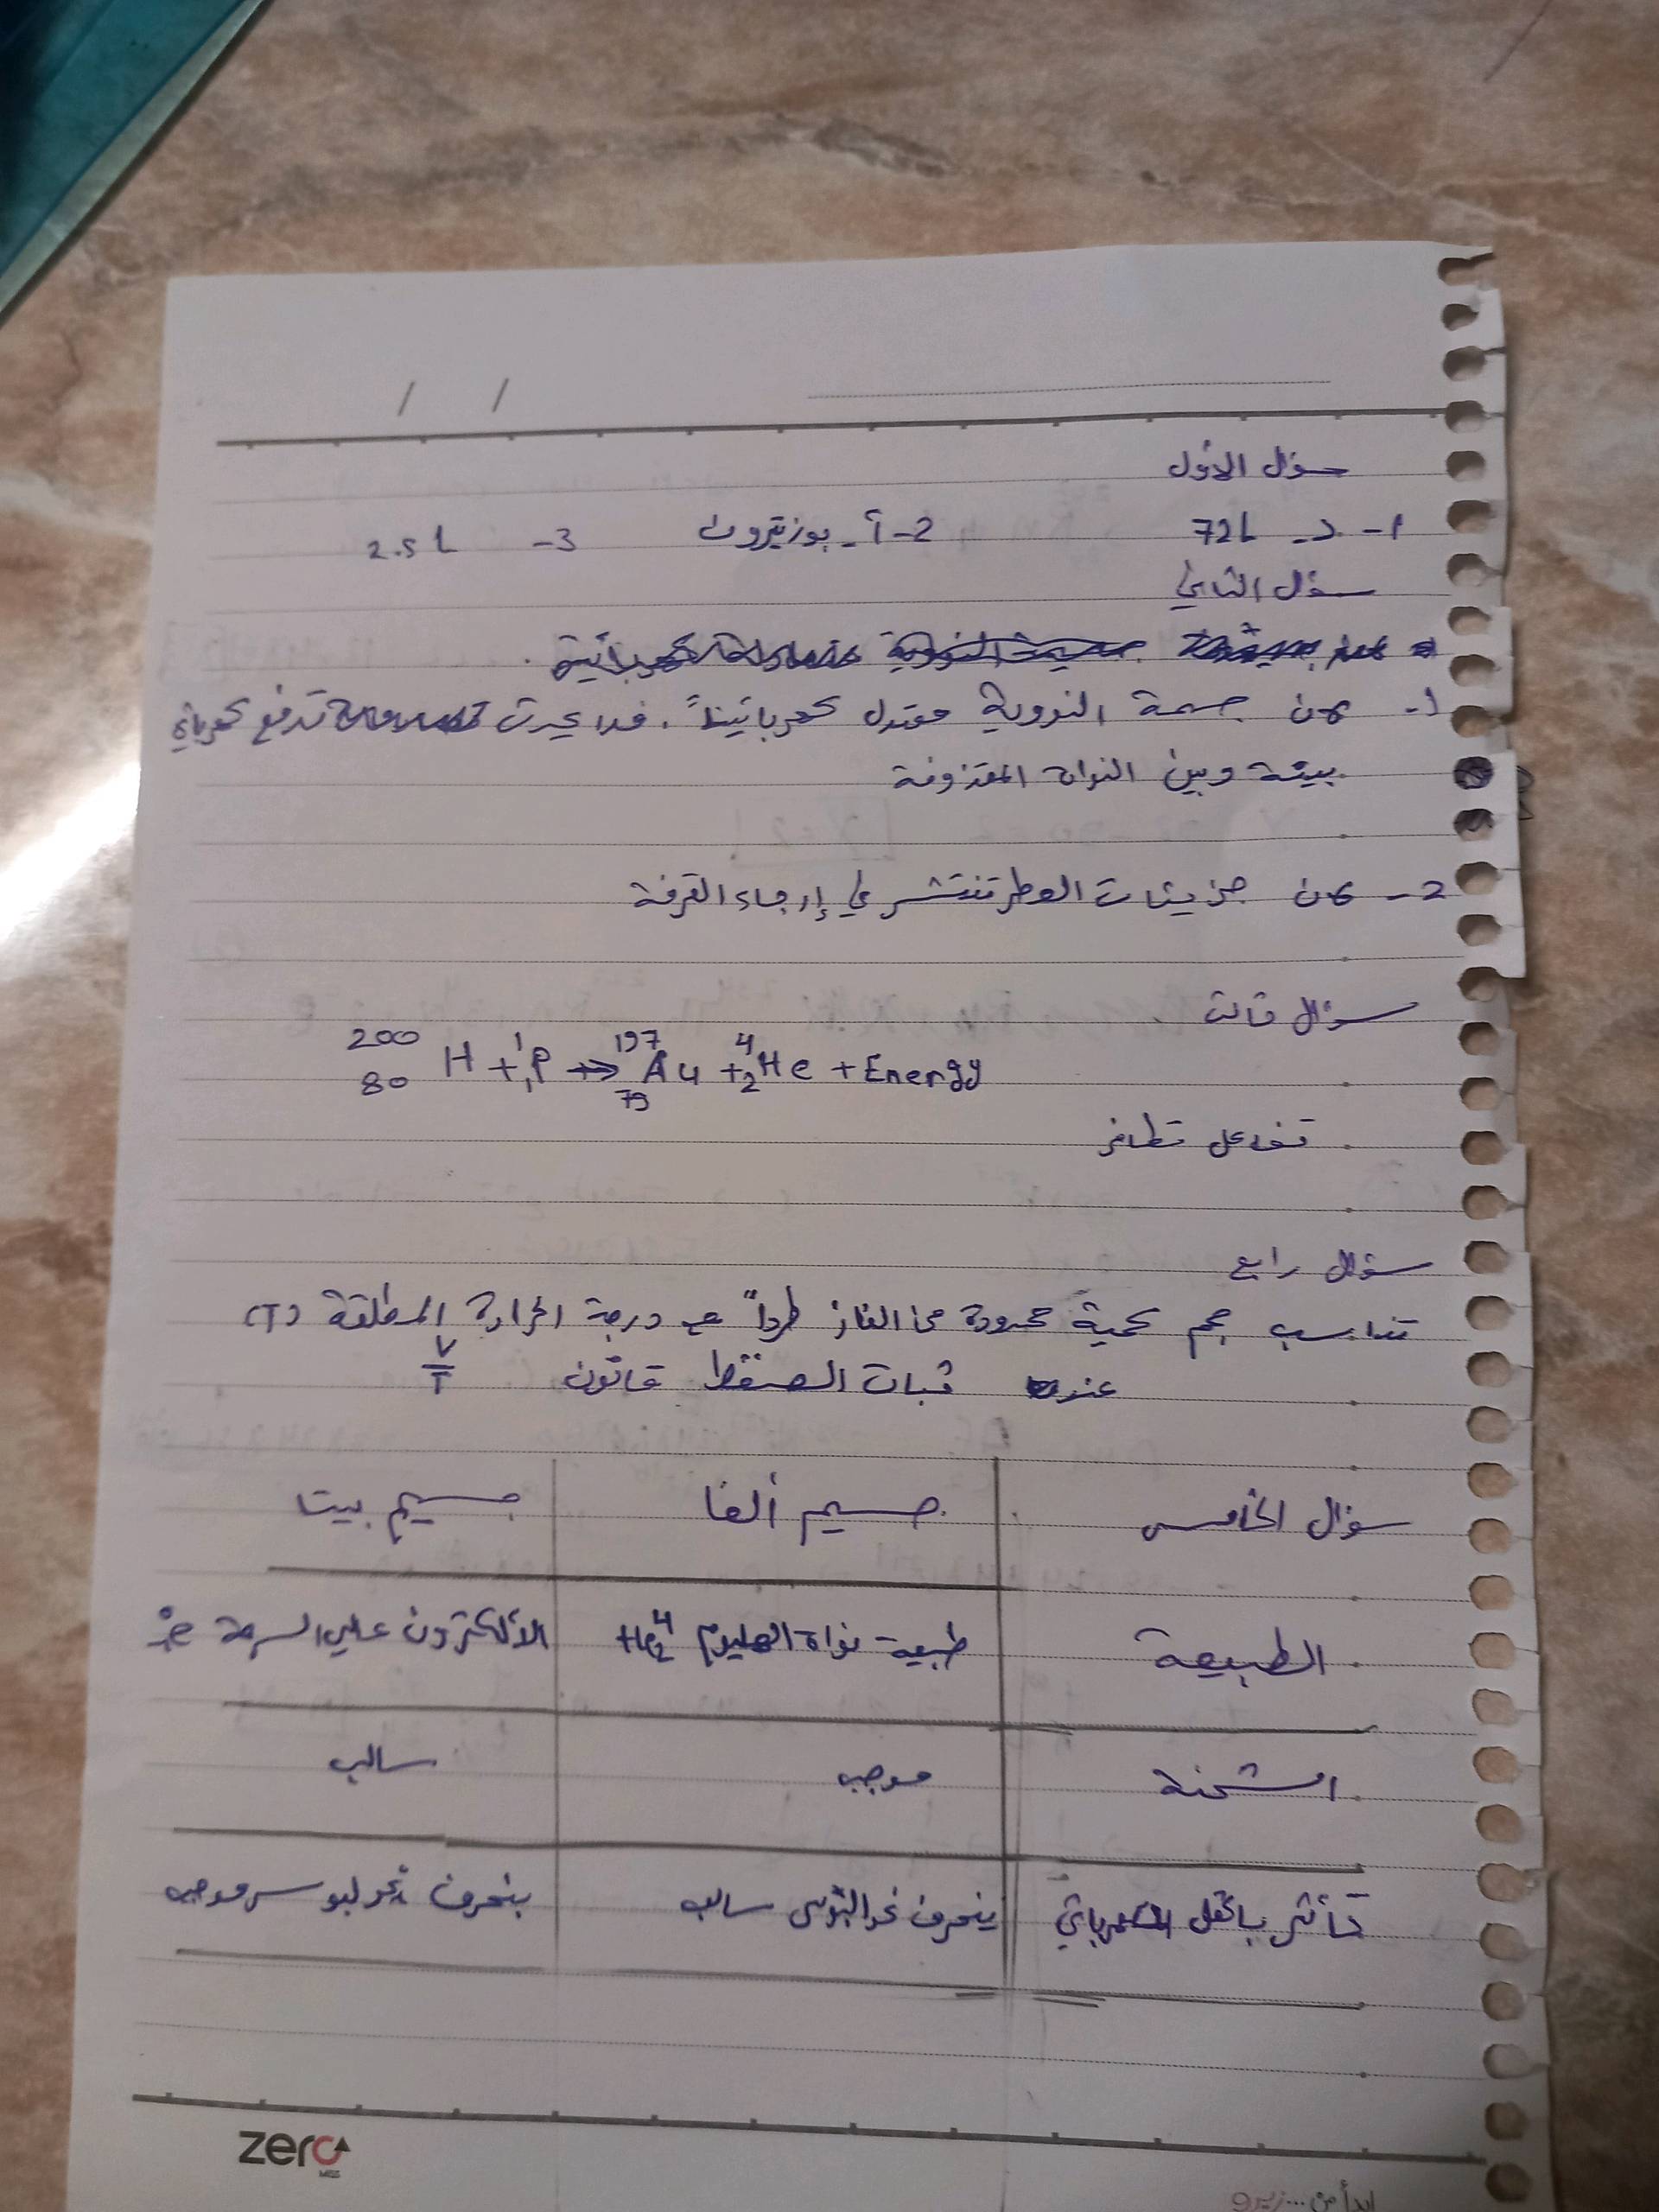 سؤال الاول
1- د- 72L 2- أ- بوزيترون 3- 2.5 L
سؤال الثاني
1- كون جسمة النووية معتدل كهربائيناً. فدا يحدث تدفع كهربائي
بيئة وبين النواة المقذوفة
2- كون جزيئات العطر تنتشر في إرجاء الغرفة
سؤال ثالث
²⁰⁰₈₀H + ¹₁P → ¹⁹⁷₇₉Au + ⁴₂He + Energy
تفاعل تطافر
سؤال رابع
تناسب حجم كمية محدودة من الغاز طرداً مع درجة الحرارة المطلقة (T)
عند ثبات الضغط قانون V/T
سؤال الخامس جسيم ألفا جسيم بيتا
الطبيعة طبيعة نواة الهليوم He⁴₂ الألكترون عالي السرعة
الشحنة موجب سالب
تأثر بالحقل الكهربائي ينحرف نحو البوس سالب ينحرف نحو لبوس موجب
zero
MISS
ابدأ من... زيرو